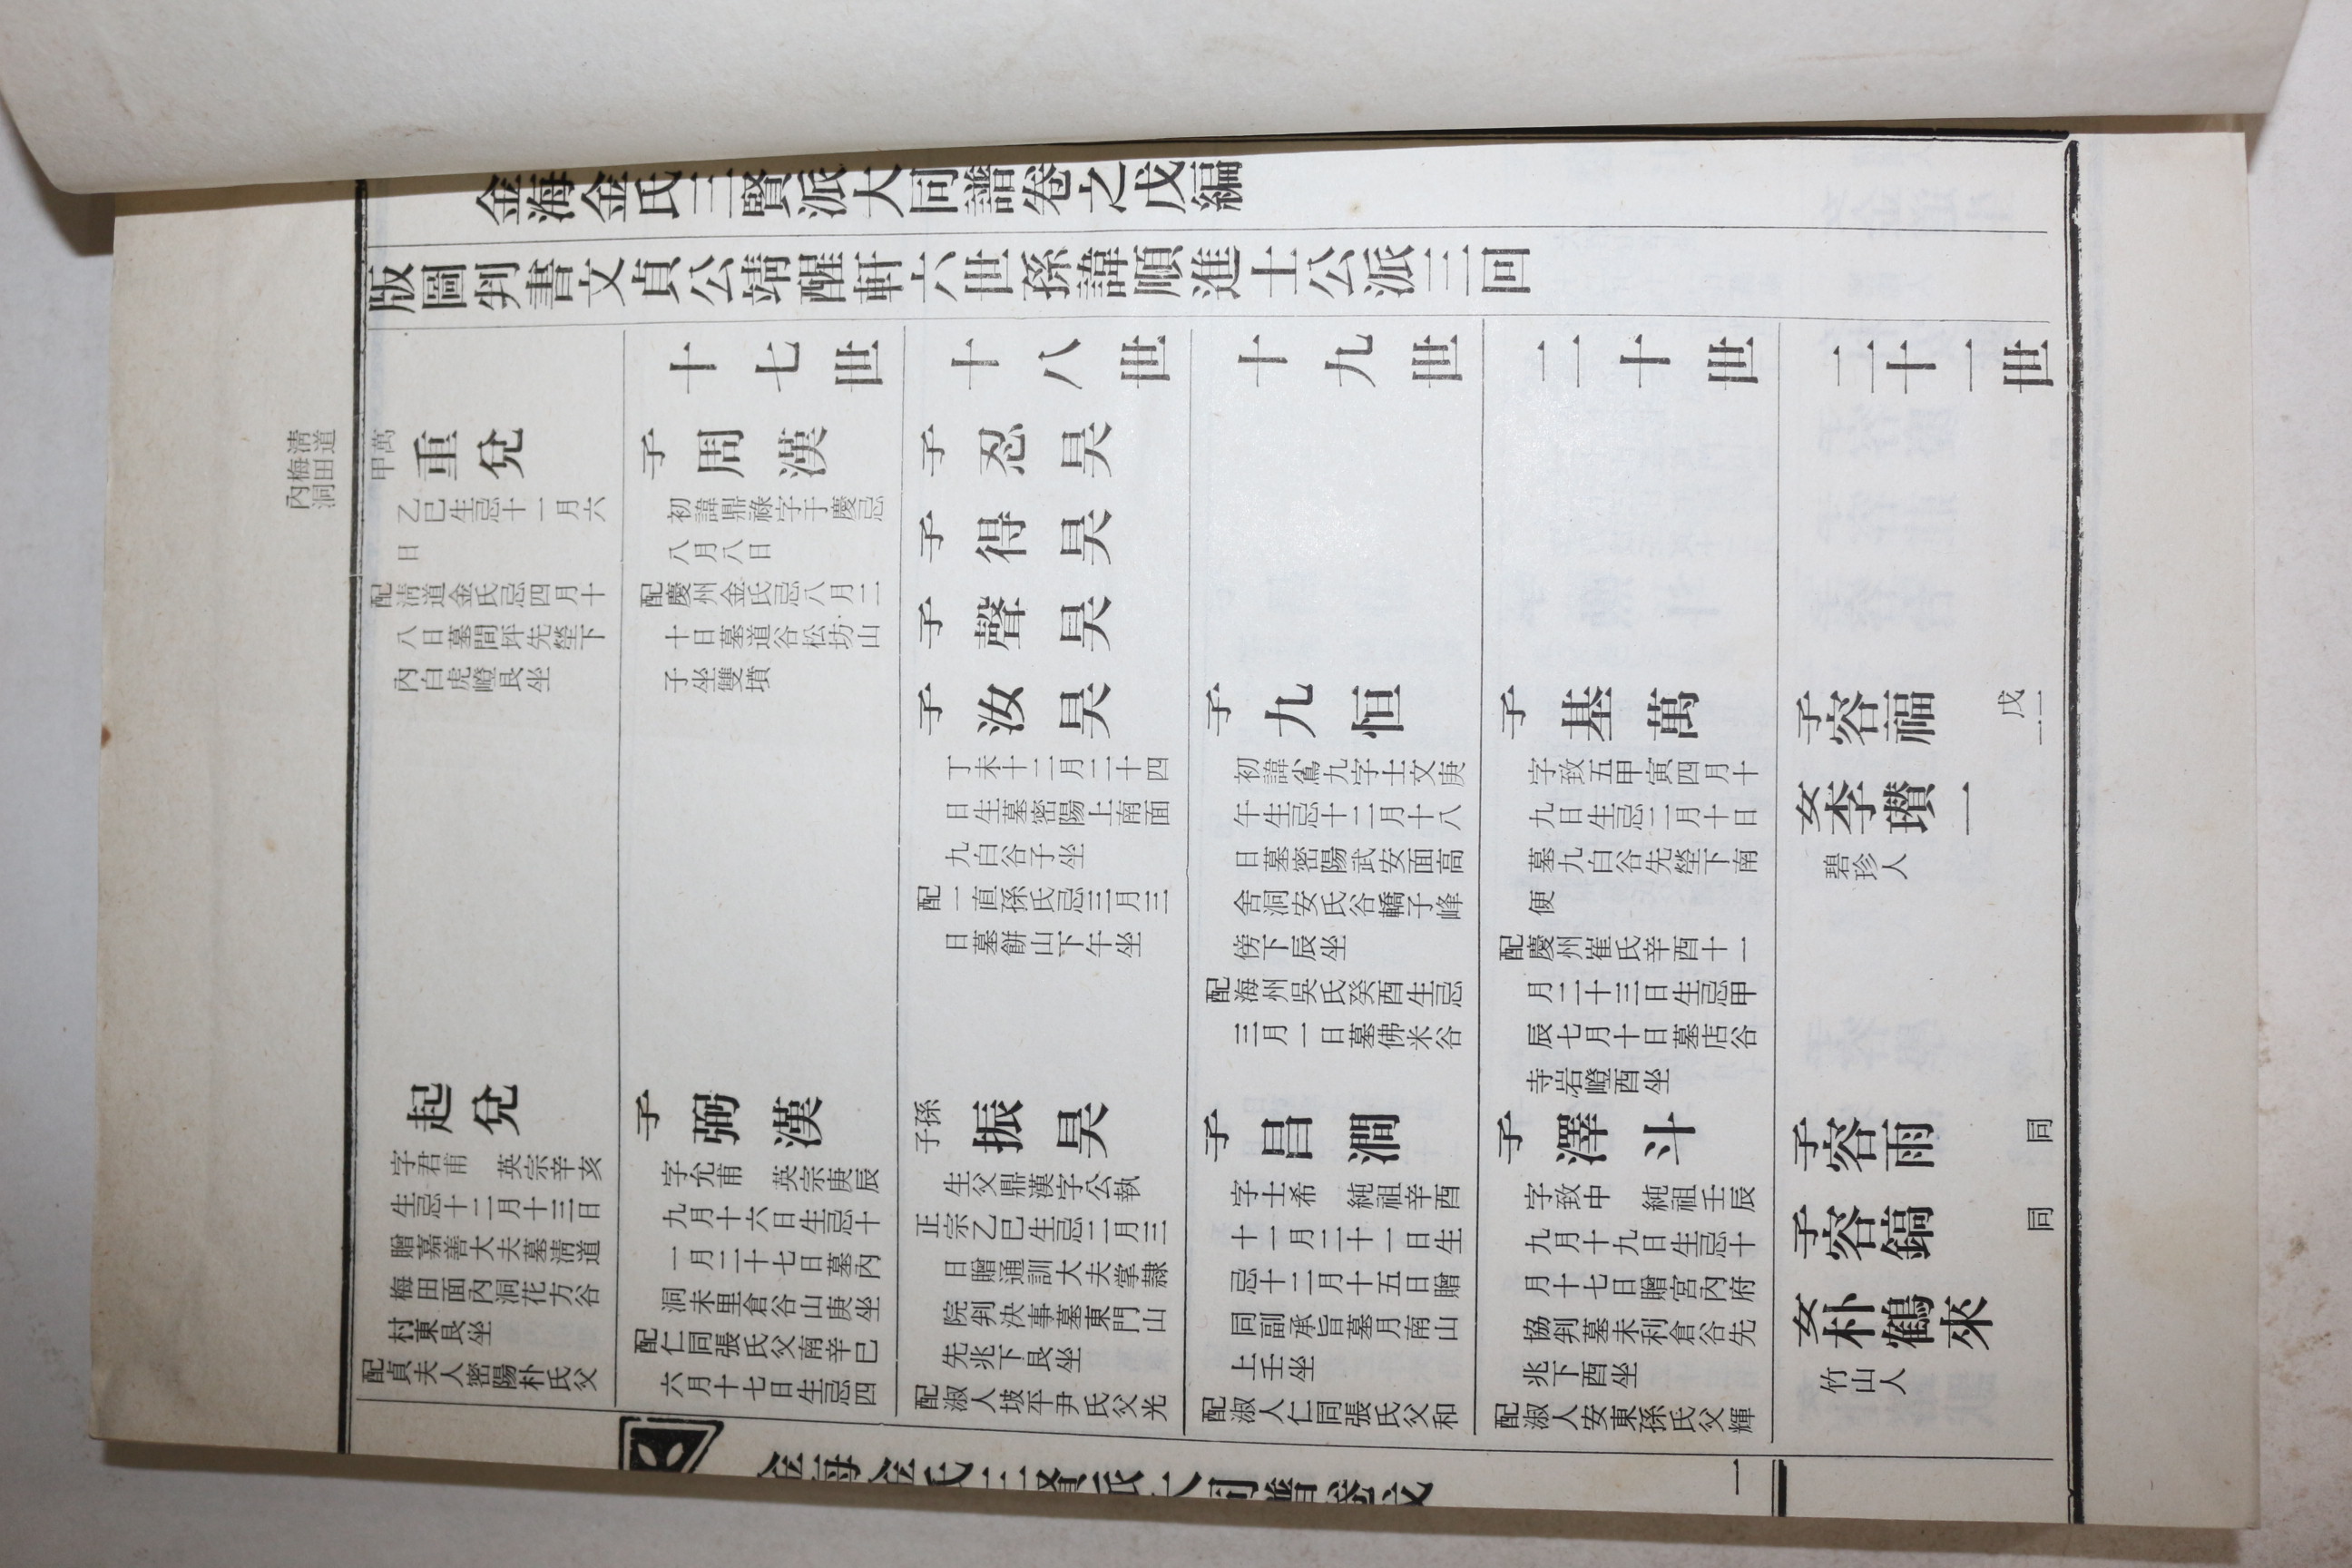 金海金氏三賢派大同譜卷之戊編
版圖判書文貞公靖醒軒六世孫諱順進士公派三回
淸道
梅田
內洞
萬
甲
重兌
乙巳生忌十一月六
日
配淸道金氏忌四月十
八日墓間坪先塋下
內白虎嶝艮坐
起兌
字君甫 英宗辛亥
生忌十二月十三日
贈嘉善大夫墓淸道
梅田面內洞花方谷
村東艮坐
配貞夫人密陽朴氏父
十七世
子 周漢
初諱鼎祿字于慶忌
八月八日
配慶州金氏忌八月二
十日墓道谷松坊山
子坐雙墳
子 弼漢
字允甫 英宗庚辰
九月十六日生忌十
一月二十七日墓內
洞未里倉谷山庚坐
配仁同張氏父南辛巳
六月十七日生忌四
十八世
子 忍昊
子 得昊
子 聲昊
子 汝昊
丁未十二月二十四
日生墓密陽上南面
九白谷子坐
配一直孫氏忌三月三
日墓餠山下午坐
子孫 振昊
生父鼎漢字公執
正宗乙巳生忌二月三
日贈通訓大夫掌隷
院判決事墓東門山
先兆下艮坐
配淑人坡平尹氏父光
十九世
子 九恒
初諱 九字士文庚
午生忌十二月十八
日墓密陽武安面高
舍洞安氏谷轎子峰
傍下辰坐
配海州吳氏癸酉生忌
三月一日墓佛米谷
子 昌澗
字士希 純祖辛酉
十一月二十一日生
忌十二月十五日贈
同副承旨墓月南山
上壬坐
配淑人仁同張氏父和
二十世
子 基萬
字致五甲寅四月十
九日生忌二月十日
墓九白谷先塋下南
便
配慶州崔氏辛酉十一
月二十三日生忌甲
辰七月十日墓店谷
寺岩嶝酉坐
子 澤斗
字致中 純祖壬辰
九月十九日生忌十
月十七日贈宮內府
協判墓未利倉谷先
兆下酉坐
配淑人安東孫氏父輝
二十一世
子容福
戊二
一
女李瓚一
碧珍人
子容雨
同
子容鎬
同
女朴鶴來
竹山人
金海金氏三賢派大同譜卷之
一